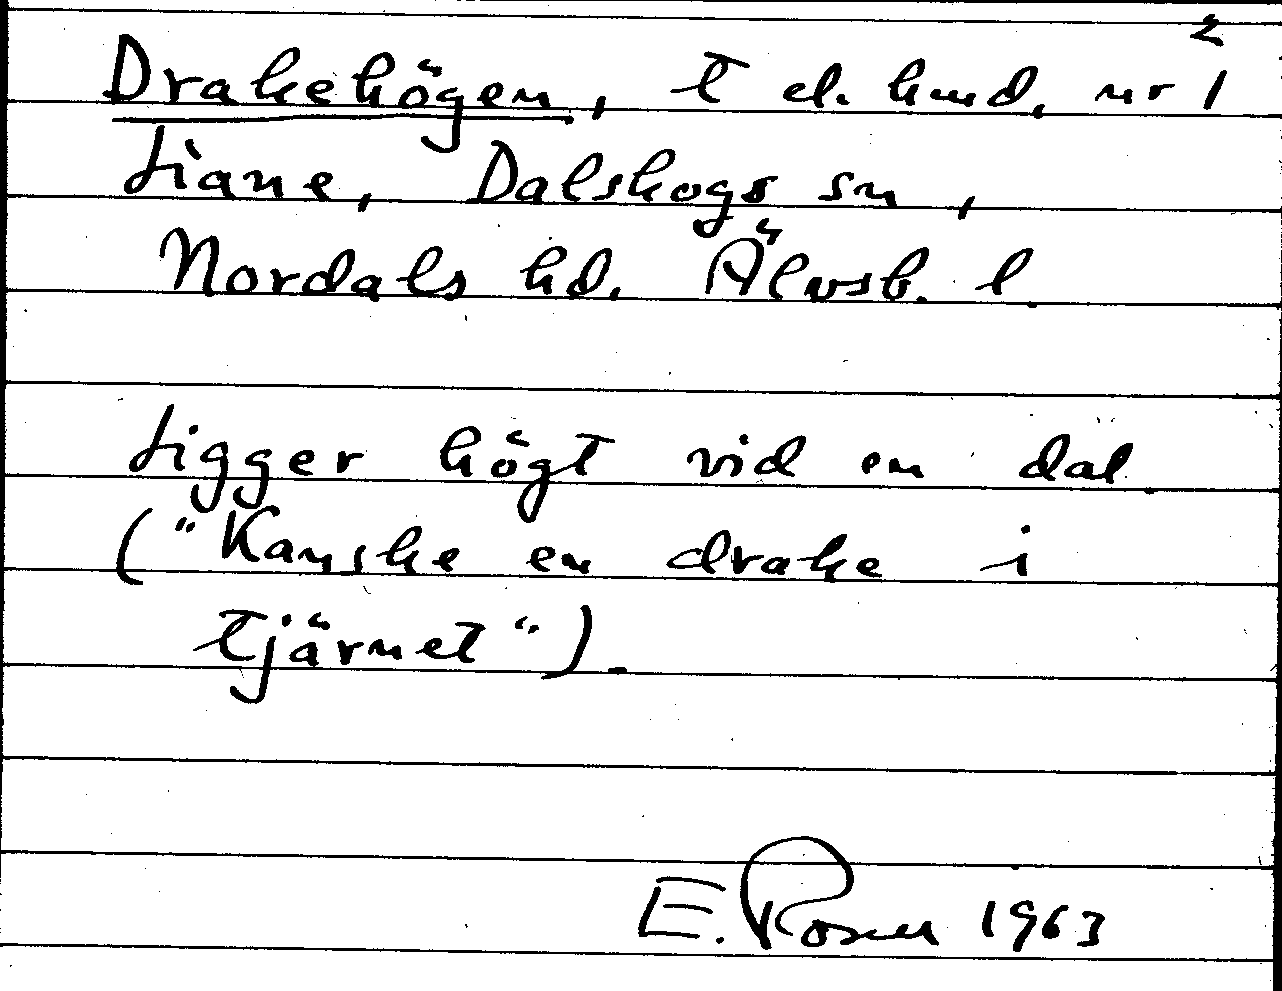 2
Drakehögen, t el. kmd. nr 1
Liane, Dalskogs sn,
Nordals hd. Älvsb. l.
Ligger högt vid en dal.
("Kanske en drake i
tjärnet").
E. Rosell 1963